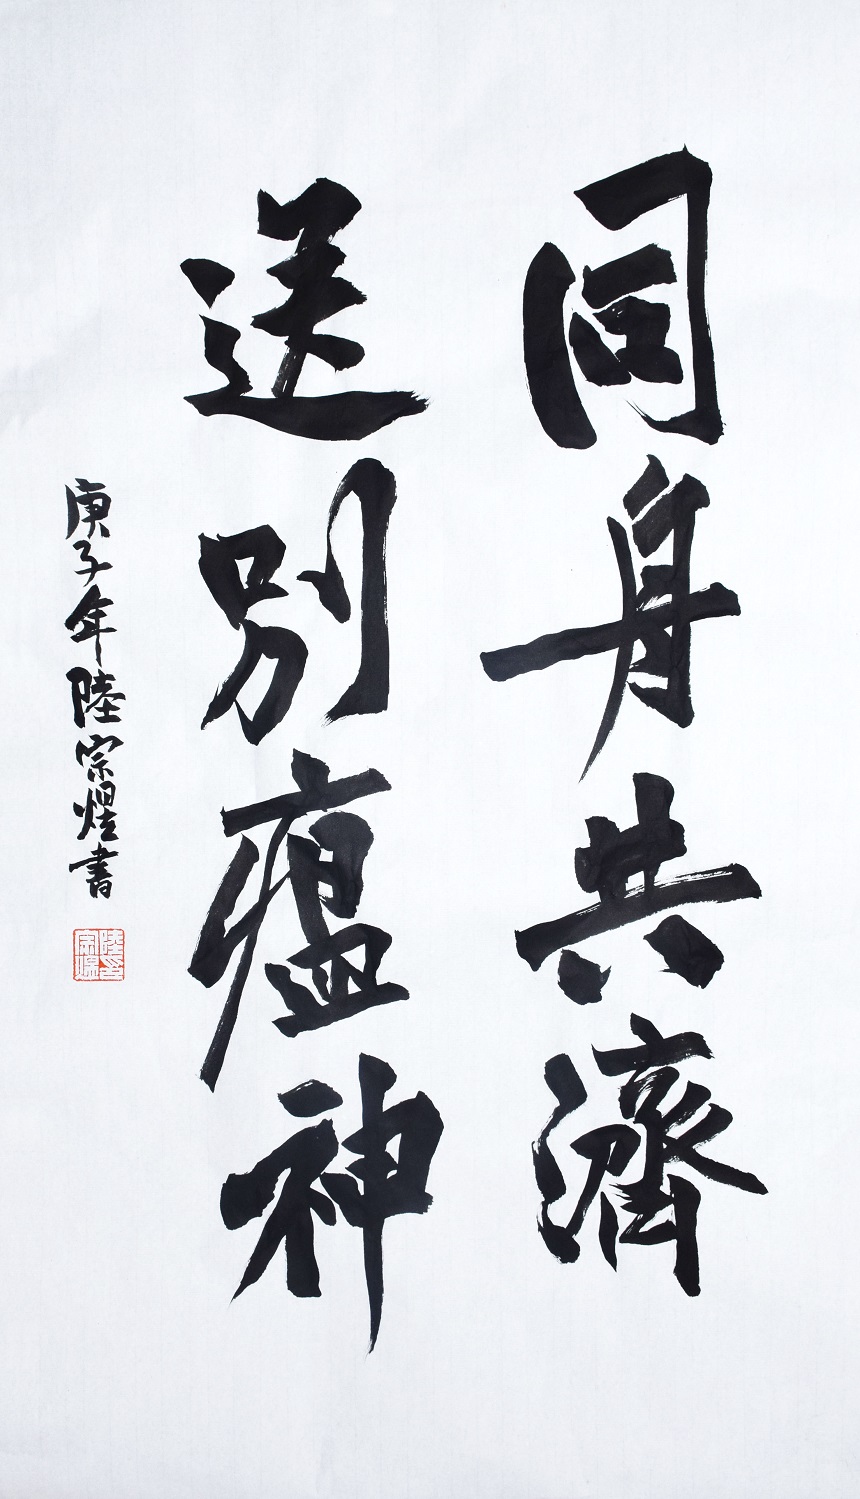 同舟共濟
送别瘟神
庚子年陸宗煜書
陸宗煜印